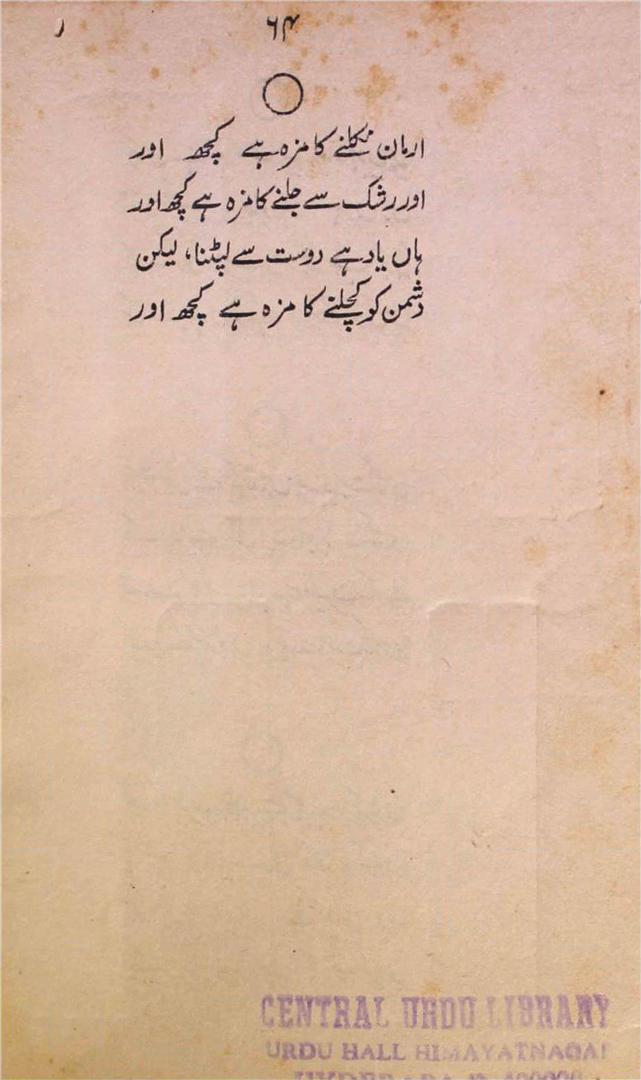 ۶۴
ارمان نکلنے کا مزہ ہے کچھ اور
اور رشک سے جلنے کا مزہ ہے کچھ اور
ہاں یاد ہے دوست سے لپٹنا، لیکن
دشمن کو کچلنے کا مزہ ہے کچھ اور
CENTRAL URDU LIBRARY
URDU HALL HIMAYATNAGAR